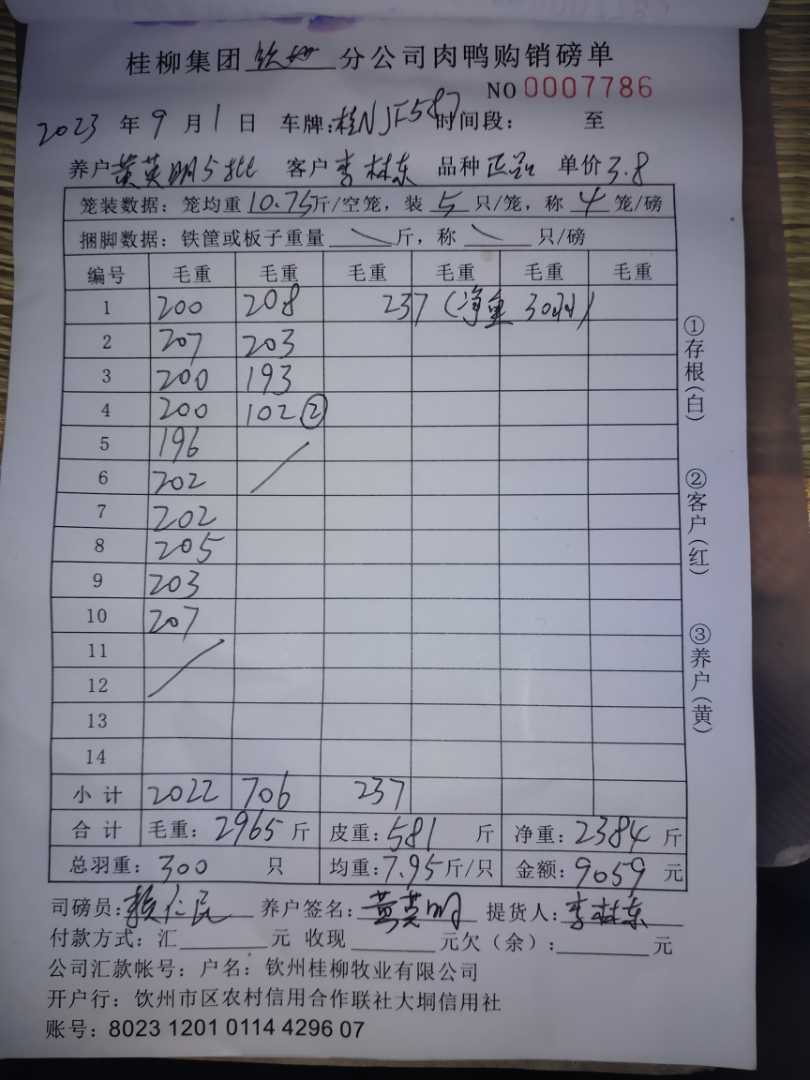 桂柳集团 钦州 分公司肉鸭购销磅单
NO 0007786
2023 年 9 月 1 日 车牌:桂NJF587 时间段: 至
养户 黄英明5批 客户 李林东 品种 单价 3.8
笼装数据：笼均重 10.75斤/空笼，装 5 只/笼，称 4 笼/磅
捆脚数据：铁筐或板子重量 斤，称 只/磅
编号 毛重 毛重 毛重 毛重 毛重 毛重
1 200 208 237 (净重 30羽)
2 207 203
3 200 193
4 200 102 ②
5 196
6 202
7 202
8 205
9 203
10 207
11
12
13
14
小计 2022 706 237
合计 毛重：2965 斤 皮重：581 斤 净重：2384 斤
总羽重：300 只 均重：7.95斤/只 金额：9059 元
司磅员：赖仁民 养户签名：黄英明 提货人：李林东
付款方式：汇 元 收现 元欠（余）： 元
公司汇款帐号：户名：钦州桂柳牧业有限公司
开户行：饮州市区农村信用合作联社大垌信用社
账号：8023 1201 0114 4296 07
①存根(白)
②客户(红)
③养户(黄)